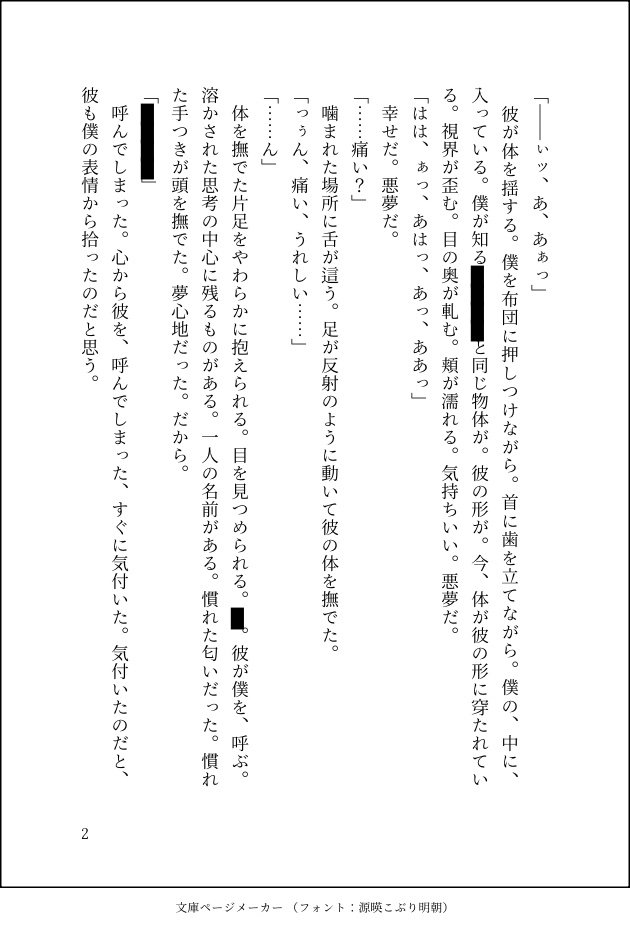 「――ぃッ、あ、あぁっ」
　彼が体を揺する。僕を布団に押しつけながら。首に歯を立てながら。僕の、中に、
入っている。僕が知る と同じ物体が。彼の形が。今、体が彼の形に穿たれてい
る。視界が歪む。目の奥が軋む。頬が濡れる。気持ちいい。悪夢だ。
「はは、ぁっ、あはっ、あっ、ああっ」
　幸せだ。悪夢だ。
「……痛い？」
　噛まれた場所に舌が這う。足が反射のように動いて彼の体を撫でた。
「っぅん、痛い、うれしい……」
「……ん」
　体を撫でた片足をやわらかに抱えられる。目を見つめられる。 。彼が僕を、呼ぶ。
溶かされた思考の中心に残るものがある。一人の名前がある。慣れた匂いだった。慣れ
た手つきが頭を撫でた。夢心地だった。だから。
「 」
　呼んでしまった。心から彼を、呼んでしまった、すぐに気付いた。気付いたのだと、
彼も僕の表情から拾ったのだと思う。
2
文庫ページメーカー（フォント：源暎こぶり明朝）